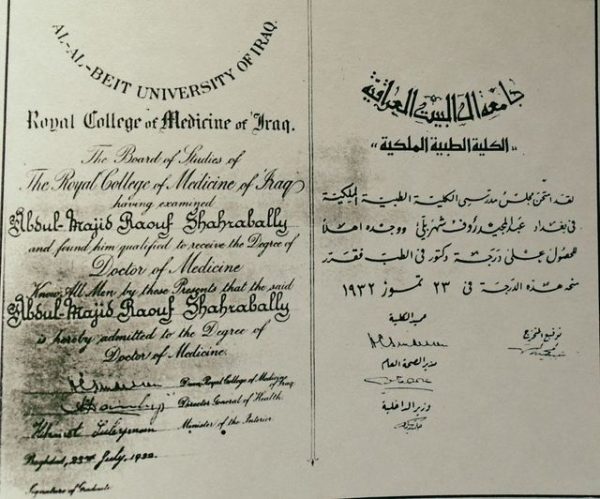 AL-AL-BEIT UNIVERSITY OF IRAQ.
Royal College of Medicine of Iraq.
The Board of Studies of
The Royal College of Medicine of Iraq
having examined
Abdul-Majid Raouf Shahrabally
and found him qualified to receive the Degree of
Doctor of Medicine
Know All Men by these Presents that the said
Abdul-Majid Raouf Shahrabally
is hereby admitted to the Degree of
Doctor of Medicine.
Dean, Royal College of Medicine of Iraq
Director General of Health
Minister of the Interior
Baghdad, 23rd July, 1932.
Signature of Graduate
جامعة آل البيت العراقية
"الكلية الطبية الملكية"
لقد امتحن مجلس مدرسي الكلية الطبية الملكية
في بغداد عبد المجيد رؤوف شهربلي ووجده اهلاً
للحصول على درجة دكتور في الطب فقرر
منحه هذه الدرجة في ٢٣ تموز ١٩٣٢
عميد الكلية
توقيع المتخرج
مدير الصحة العام
وزير الداخلية